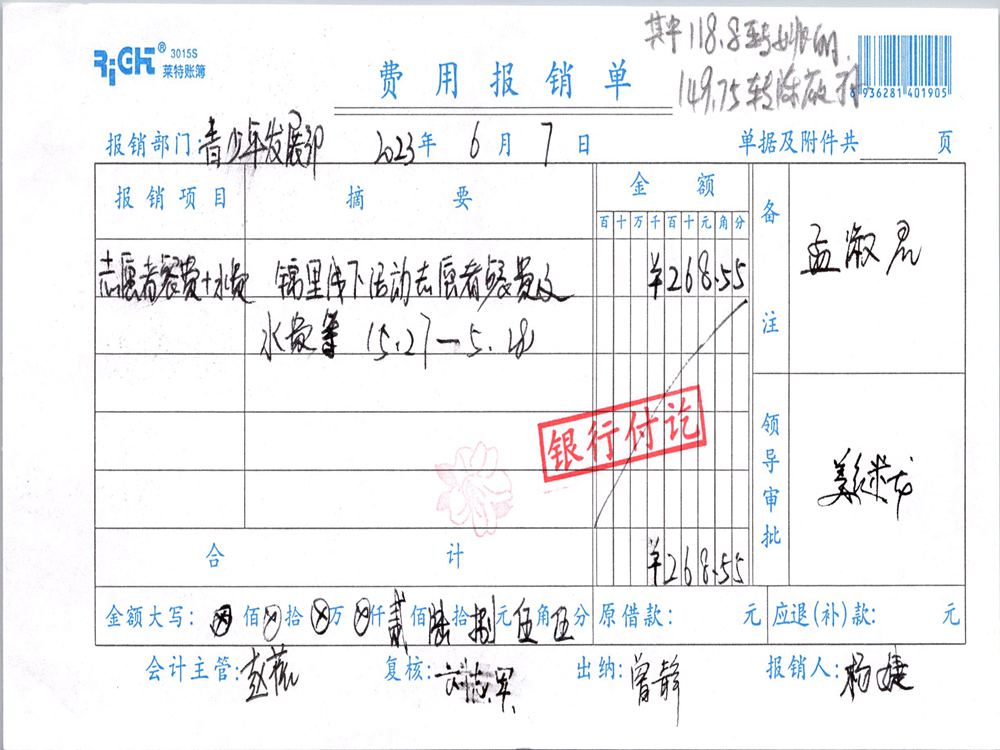 RiGHT® 3015S
莱特账簿
费用报销单
其中118.8转
149.75转
936281 401905
报销部门:青少年发展部 2023年 6月 7日 单据及附件共 页
报销项目 摘要 金额 备注
百十万千百十元角分
志愿者餐费+水费 锦里线下活动志愿者餐费及 ¥268.55 孟淑君
水费等 (5.27-5.28)
银行付讫
领导审批 姜龙
合计 ¥268.55
金额大写: ⊗佰⊗拾⊗万⊗仟贰佰陆拾捌元伍角伍分 原借款: 元 应退(补)款: 元
会计主管: 赵薇 复核: 刘志军 出纳: 曾静 报销人: 杨婕